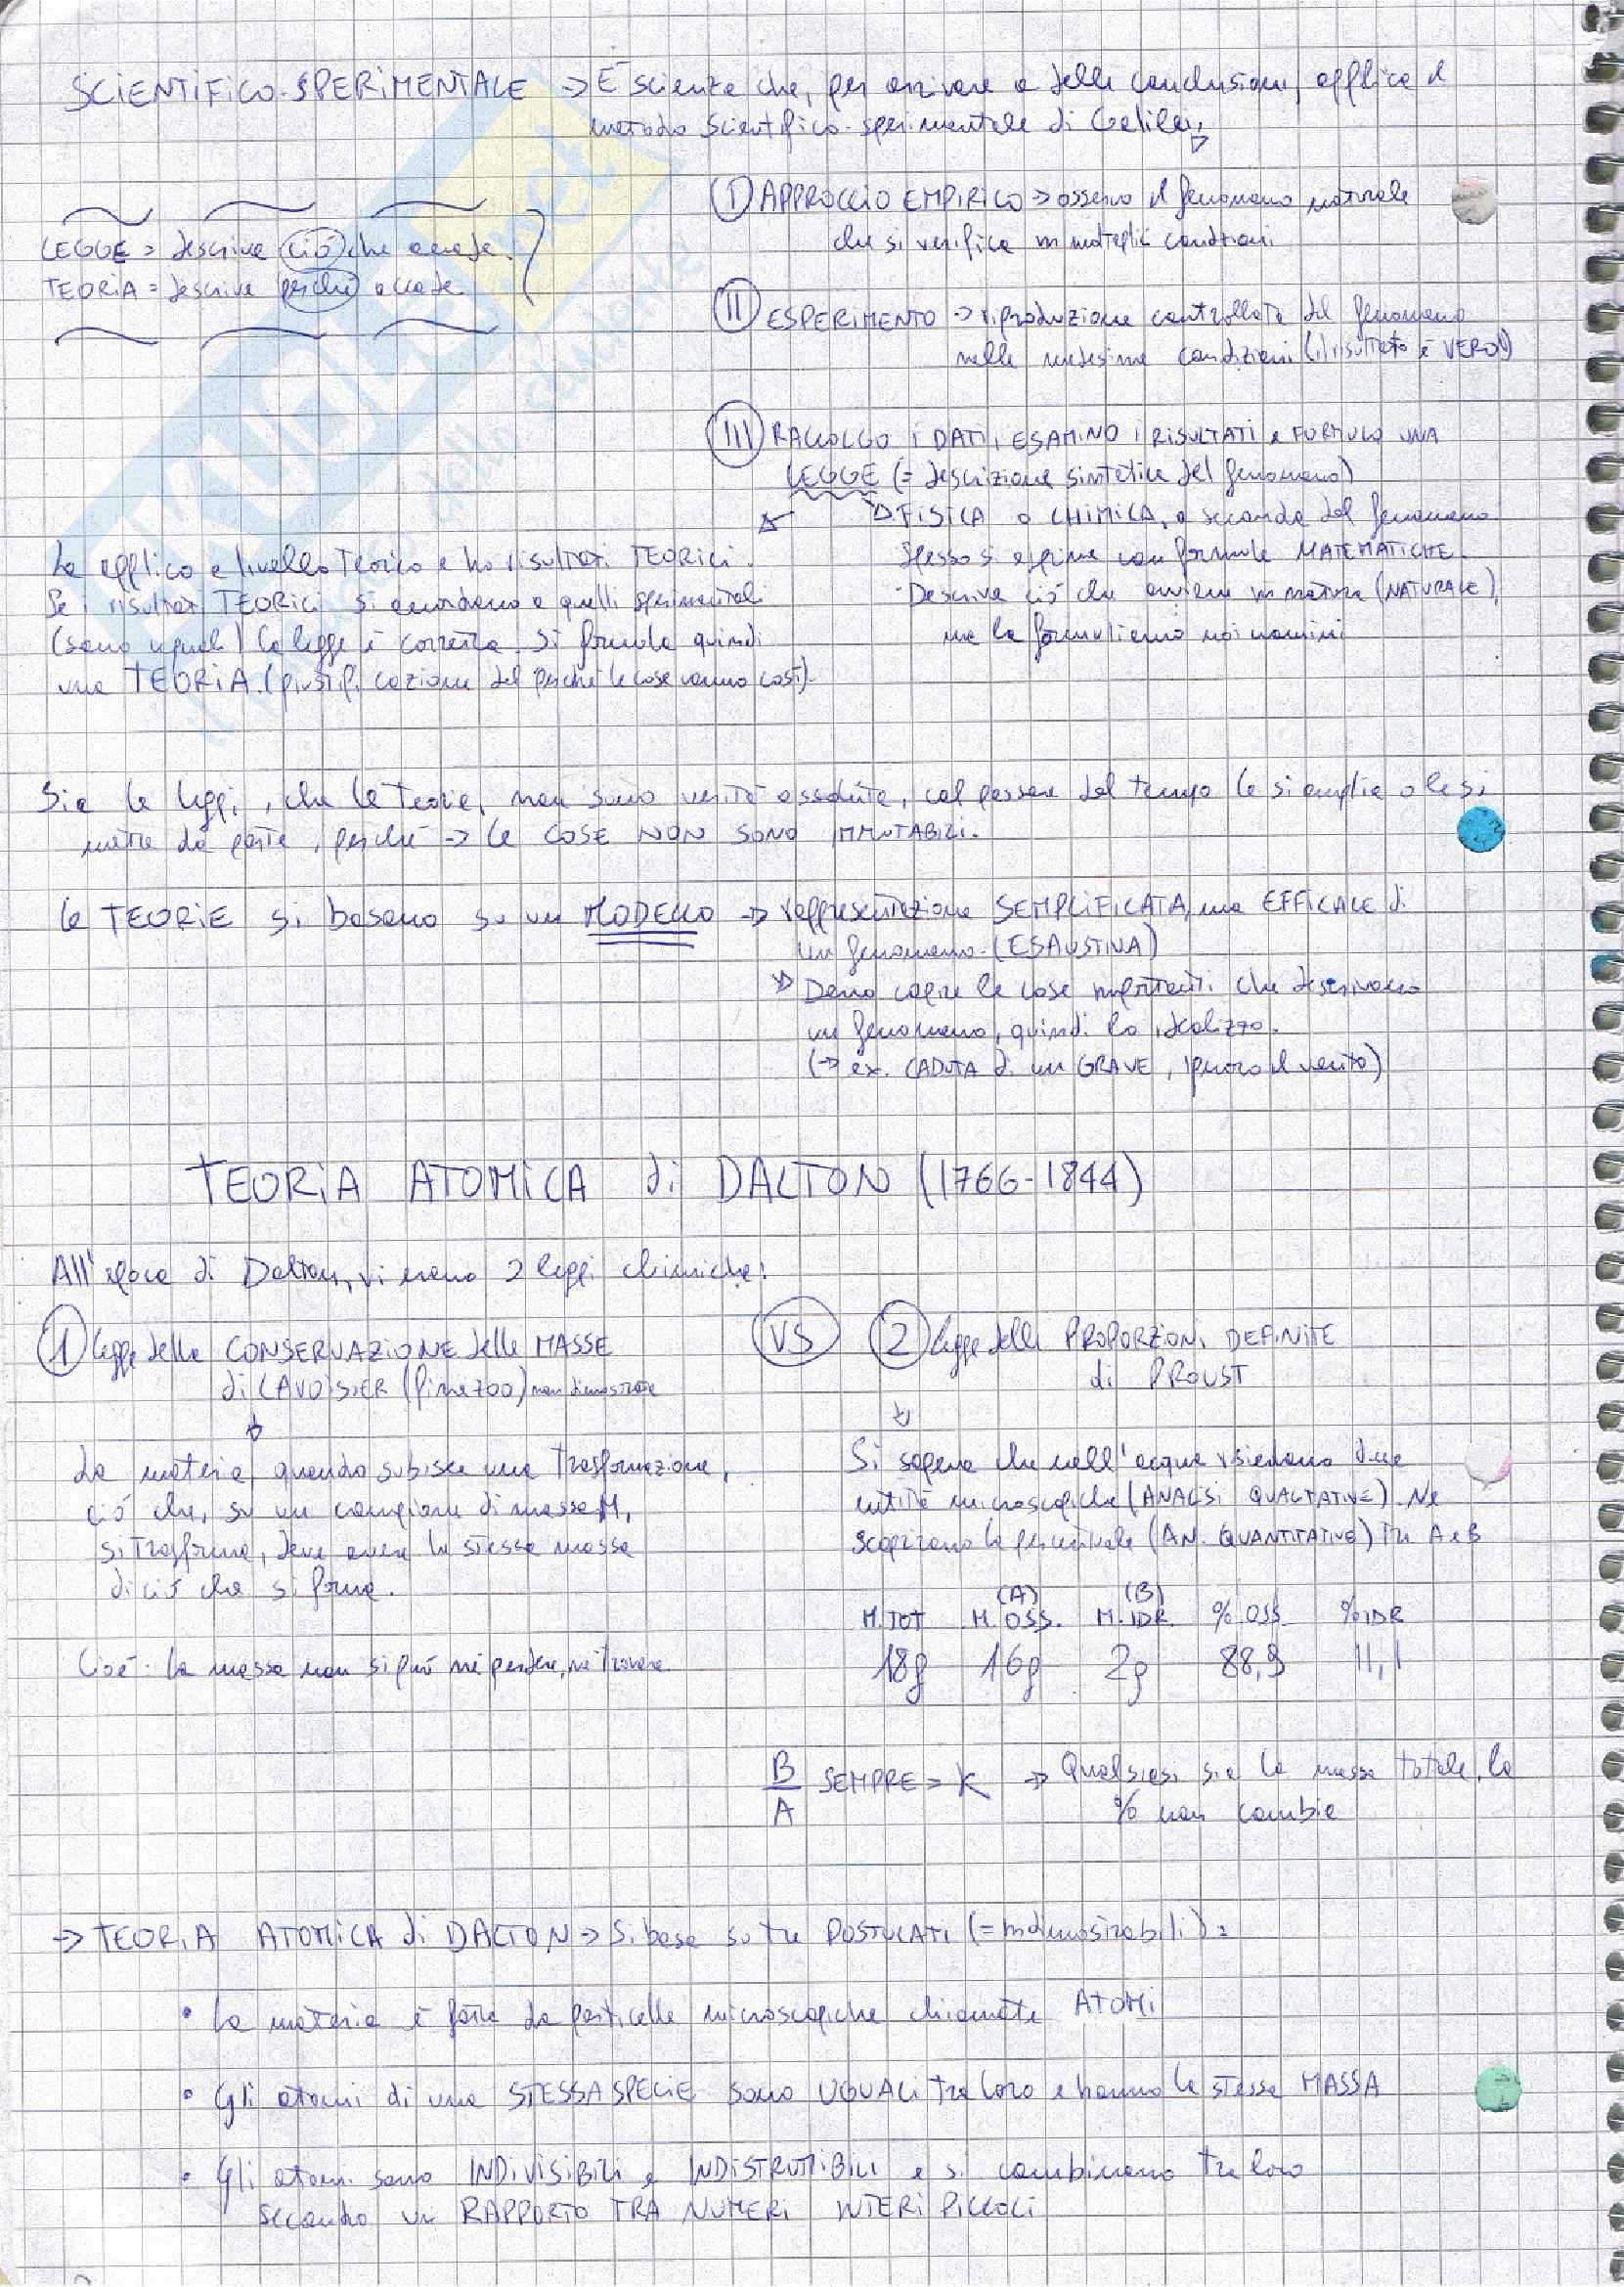 SCIENTIFICO-SPERIMENTALE → È scienza che, per arrivare a delle conclusioni, applica il
metodo scientifico-sperimentale di Galilei,
I APPROCCIO EMPIRICO → osservo il fenomeno naturale
che si verifica in molteplici condizioni
LEGGE = descrive ciò che accade.
TEORIA = descrive perché accade.
II ESPERIMENTO → riproduzione controllata del fenomeno
nelle medesime condizioni (il risultato è VERO!)
III RACCOLGO i DATI, ESAMINO i RISULTATI e FORMULO UNA
LEGGE (= descrizione sintetica del fenomeno)
FISICA o CHIMICA, a seconda del fenomeno
Spesso si esprime con formule MATEMATICHE.
- Descrive ciò che avviene in natura (NATURALE),
ma la formuliamo noi uomini
La applico a livello teorico e ho risultati TEORICI.
Se i risultati TEORICI si accordano a quelli sperimentali
(sono uguali) la legge è corretta. Si formula quindi
una TEORIA. (giustificazione del perché le cose vanno così).
Sia le leggi, che le teorie, non sono verità assolute, col passare del tempo le si amplia o le si
mette da parte, perché → le COSE NON SONO IMMUTABILI.
Le TEORIE si basano su un MODELLO → rappresentazione SEMPLIFICATA, ma EFFICACE di
un fenomeno. (ESAUSTIVA)
Devo capire le cose importanti che descrivono
un fenomeno, quindi lo idealizzo.
(→ ex. CADUTA di un GRAVE, ignoro il vento)
TEORIA ATOMICA di DALTON (1766-1844)
All'epoca di Dalton, vi erano 2 leggi chimiche:
1 legge della CONSERVAZIONE delle MASSE
di LAVOISIER (fine 700) non dimostrate
VS
2 legge delle PROPORZIONI DEFINITE
di PROUST
La materia, quando subisce una trasformazione,
ciò che, su un campione di massa M,
si trasforma, deve avere la stessa massa
di ciò che si forma.
Cioè: la massa non si può né perdere, né trovare.
Si sapeva che nell'acqua risiedono due
entità microscopiche (ANALISI QUALITATIVE). Ne
scoprirono la percentuale (AN. QUANTITATIVE) tra A e B
(A) (B)
M.TOT M.OSS. M.IDR. % OSS. % IDR
18g 16g 2g 88,9 11,1
B/A SEMPRE = K → Qualsiasi sia la massa totale, la
% non cambia
→ TEORIA ATOMICA di DALTON → Si basa su tre POSTULATI (= indimostrabili):
• La materia è fatta da particelle microscopiche chiamate ATOMI
• Gli atomi di una STESSA SPECIE sono UGUALI tra loro e hanno la stessa MASSA
• Gli atomi sono INDIVISIBILI e INDISTRUTTIBILI e si combinano tra loro
secondo un RAPPORTO TRA NUMERI INTERI PICCOLI